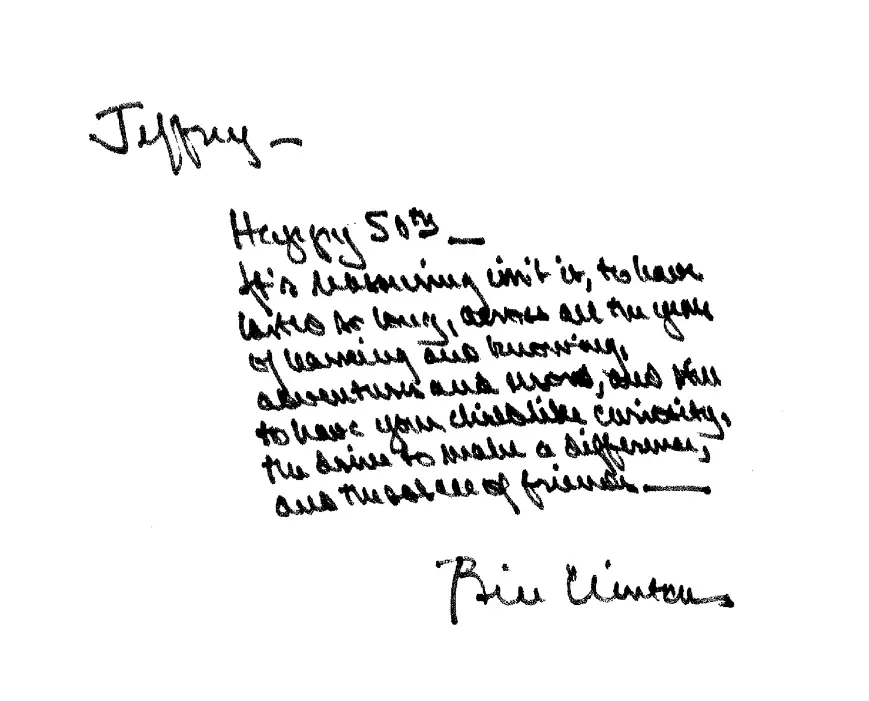 Jeffrey –
Happy 50th –
It's reassuring isn't it, to have
lasted so long, across all the years
of learning and knowing,
adventures and, and still
to have your childlike curiosity,
the drive to make a difference,
and the solace of friends —
Bill Clinton